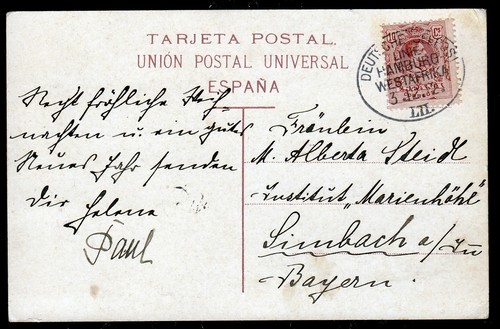 TARJETA POSTAL.
UNIÓN POSTAL UNIVERSAL
ESPAÑA
DEUTSCHE
LINIE
HAMBURG
WESTAFRIKA
LII.
Recht fröhliche Weih-
nachten u. ein gutes
Neues Jahr senden
Dir Helene
Paul
Fräulein
M. Alberta Steidl
Institut „Marienhöhe"
Simbach a/Inn
Bayern.